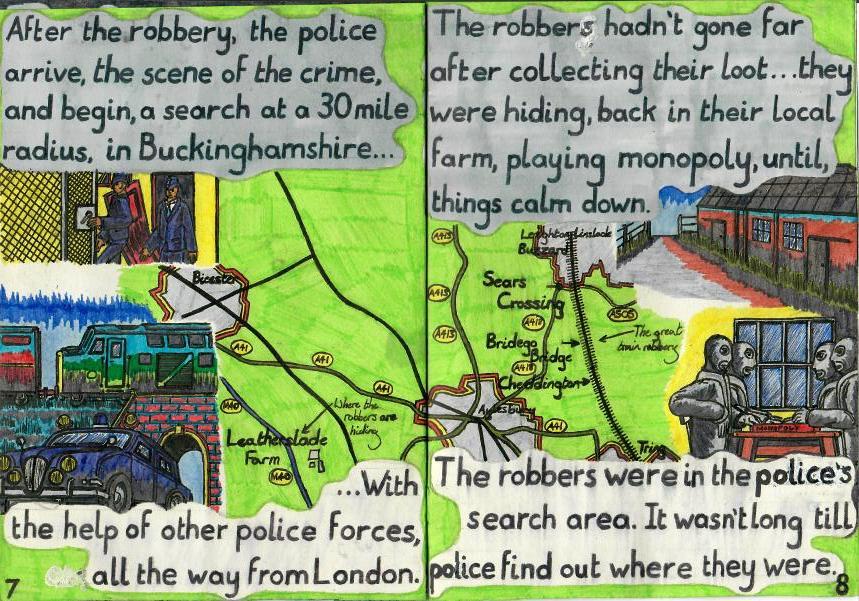 After the robbery, the police
arrive, the scene of the crime,
and begin, a search at a 30 mile
radius, in Buckinghamshire...
Bicester
A41
A41
A41
M40
Where the
robbers are
hiding
Leatherslade
Farm
M40
...With
the help of other police forces,
all the way from London.
7
The robbers hadn't gone far
after collecting their loot...they
were hiding, back in their local
farm, playing monopoly, until,
things calm down.
A413
Leighton Linslade
Buzzard
A413
Sears
Crossing
A505
A418
A413
The great
train robbery
Bridego
Bridge
A418
Cheddington
Aylesbury
A41
Tring
MONOPOLY
The robbers were in the police's
search area. It wasn't long till
police find out where they were.
8